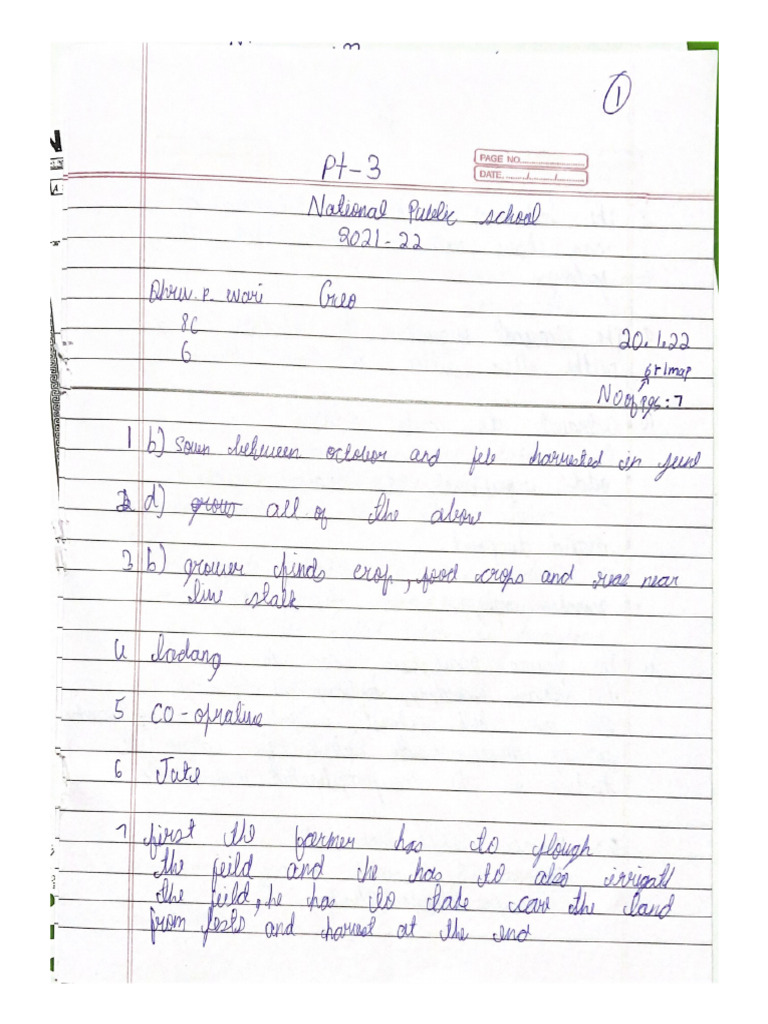 1
Pt-3
PAGE NO.
DATE
National Public school
2021-22
Geo
8C
6
20.1.22
6+1map
NO of pgs: 7
1 b) Sown between october and feb harvested in june
2 d) grows all of the above
3 b) grower finds crop, food crops and near
live stalk
4 ladang
5 CO-oprative
6 Jute
7 first the farmer has to plough
the feild and he has to also irrigate
the feild, he has to take care the land
from pests and harvest at the end